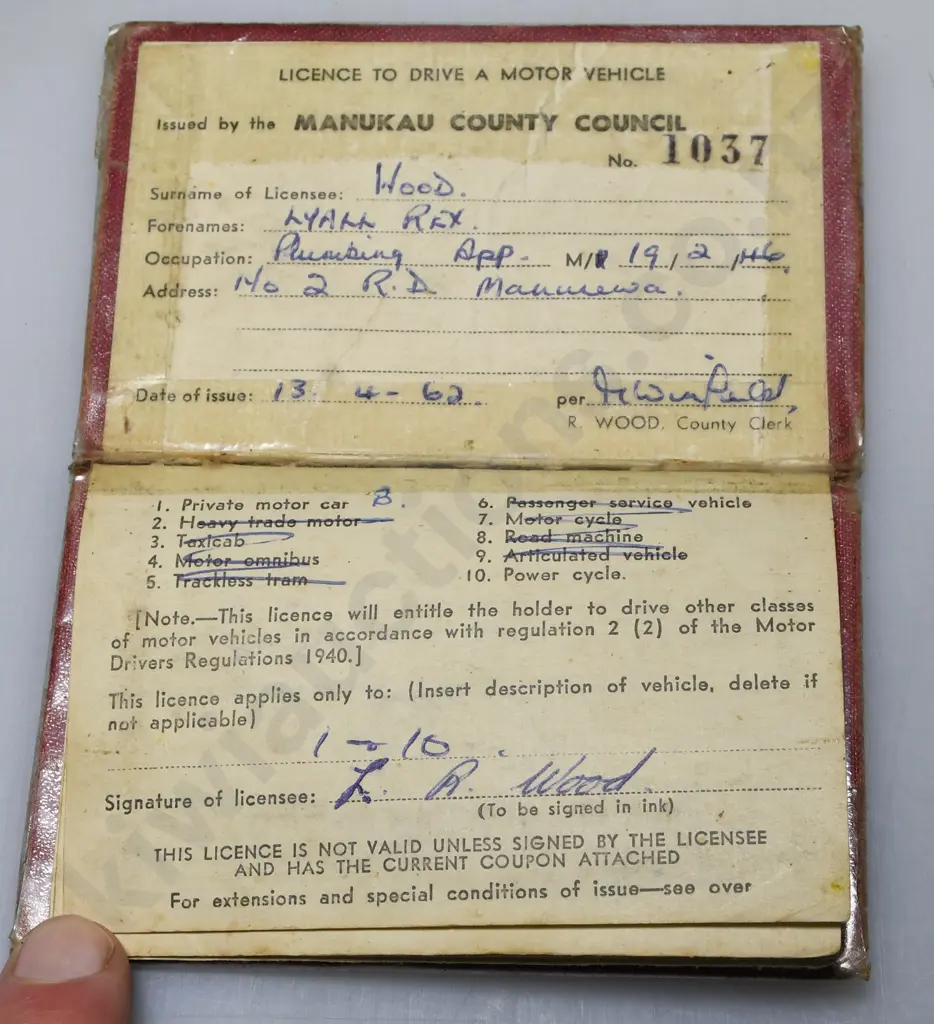 LICENCE TO DRIVE A MOTOR VEHICLE
Issued by the MANUKAU COUNTY COUNCIL
No. 1037
Surname of Licensee: WOOD.
Forenames: LYALL REX.
Occupation: Plumbing App. M/ 19/2/46.
Address: No 2 R.D. Manurewa.
Date of issue: 13. 4-62. per
R. WOOD, County Clerk
1. Private motor car B.
2. Heavy trade motor
3. Taxicab
4. Motor omnibus
5. Trackless tram
6. Passenger service vehicle
7. Motor cycle
8. Road machine
9. Articulated vehicle
10. Power cycle.
[Note.—This licence will entitle the holder to drive other classes
of motor vehicles in accordance with regulation 2 (2) of the Motor
Drivers Regulations 1940.]
This licence applies only to: (Insert description of vehicle, delete if
not applicable)
1 – 10.
Signature of licensee: L. R. Wood.
(To be signed in ink)
THIS LICENCE IS NOT VALID UNLESS SIGNED BY THE LICENSEE
AND HAS THE CURRENT COUPON ATTACHED
For extensions and special conditions of issue—see over